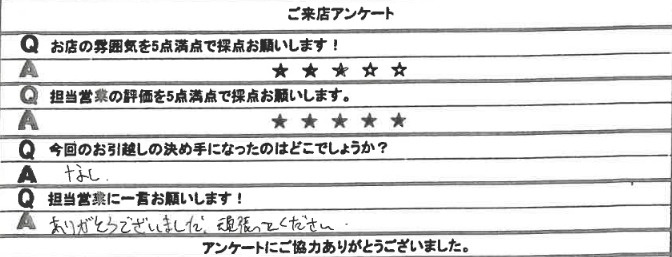 ご来店アンケート
Q お店の雰囲気を5点満点で採点お願いします！
A ★★★☆☆
Q 担当営業の評価を5点満点で採点お願いします。
A ★★★★★
Q 今回のお引越しの決め手になったのはどこでしょうか？
A なし.
Q 担当営業に一言お願いします！
A ありがとうございました。頑張ってください.
アンケートにご協力ありがとうございました。